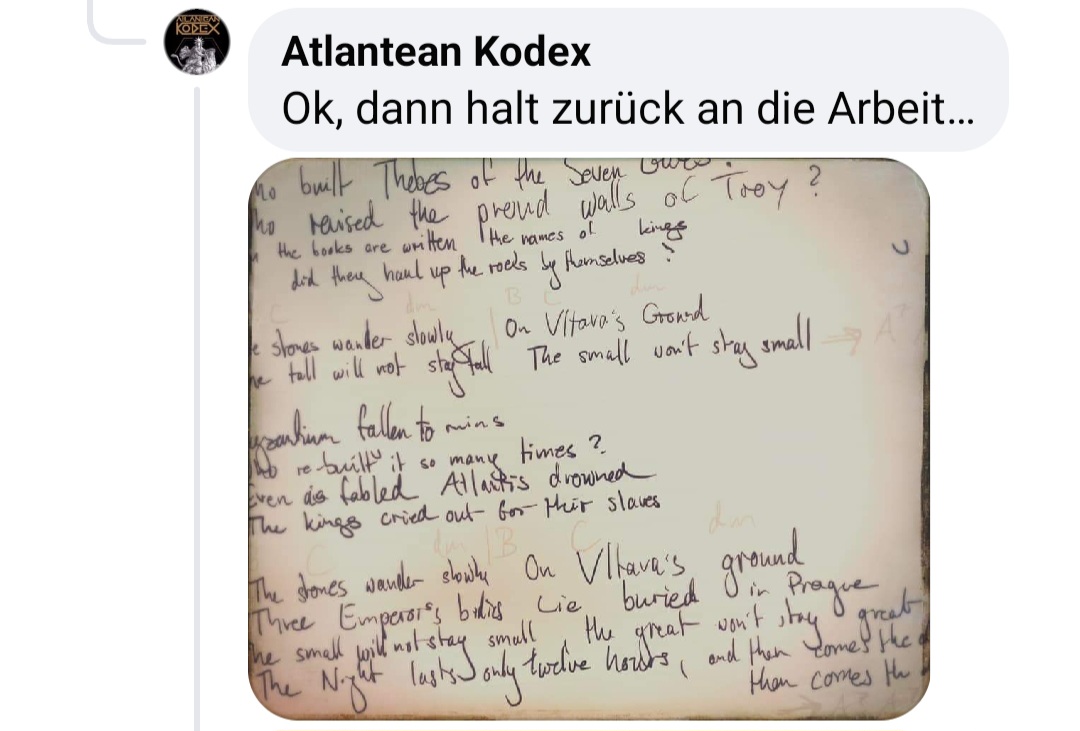 ATLANTEAN
KODEX
Atlantean Kodex
Ok, dann halt zurück an die Arbeit...
ho built Thebes of the Seven
ho raised the proud walls of Troy ?
the books are written the names of kings
did they haul up the rocks by themselves ?
C dm B C dm
e stones wander slowly | On Vltava's Ground
he tall will not stay tall The small won't stay small → A
yzantium fallen to ruins
re-built it so many times ?
Even as fabled Atlantis drowned
The kings cried out for their slaves
C dm | B C dm
The stones wander slowly On Vltava's ground
Three Emperor's bodies Lie buried in Prague
he small will not stay small, the great won't stay great
The Night lasts only twelve hours, and then comes the d
then comes th